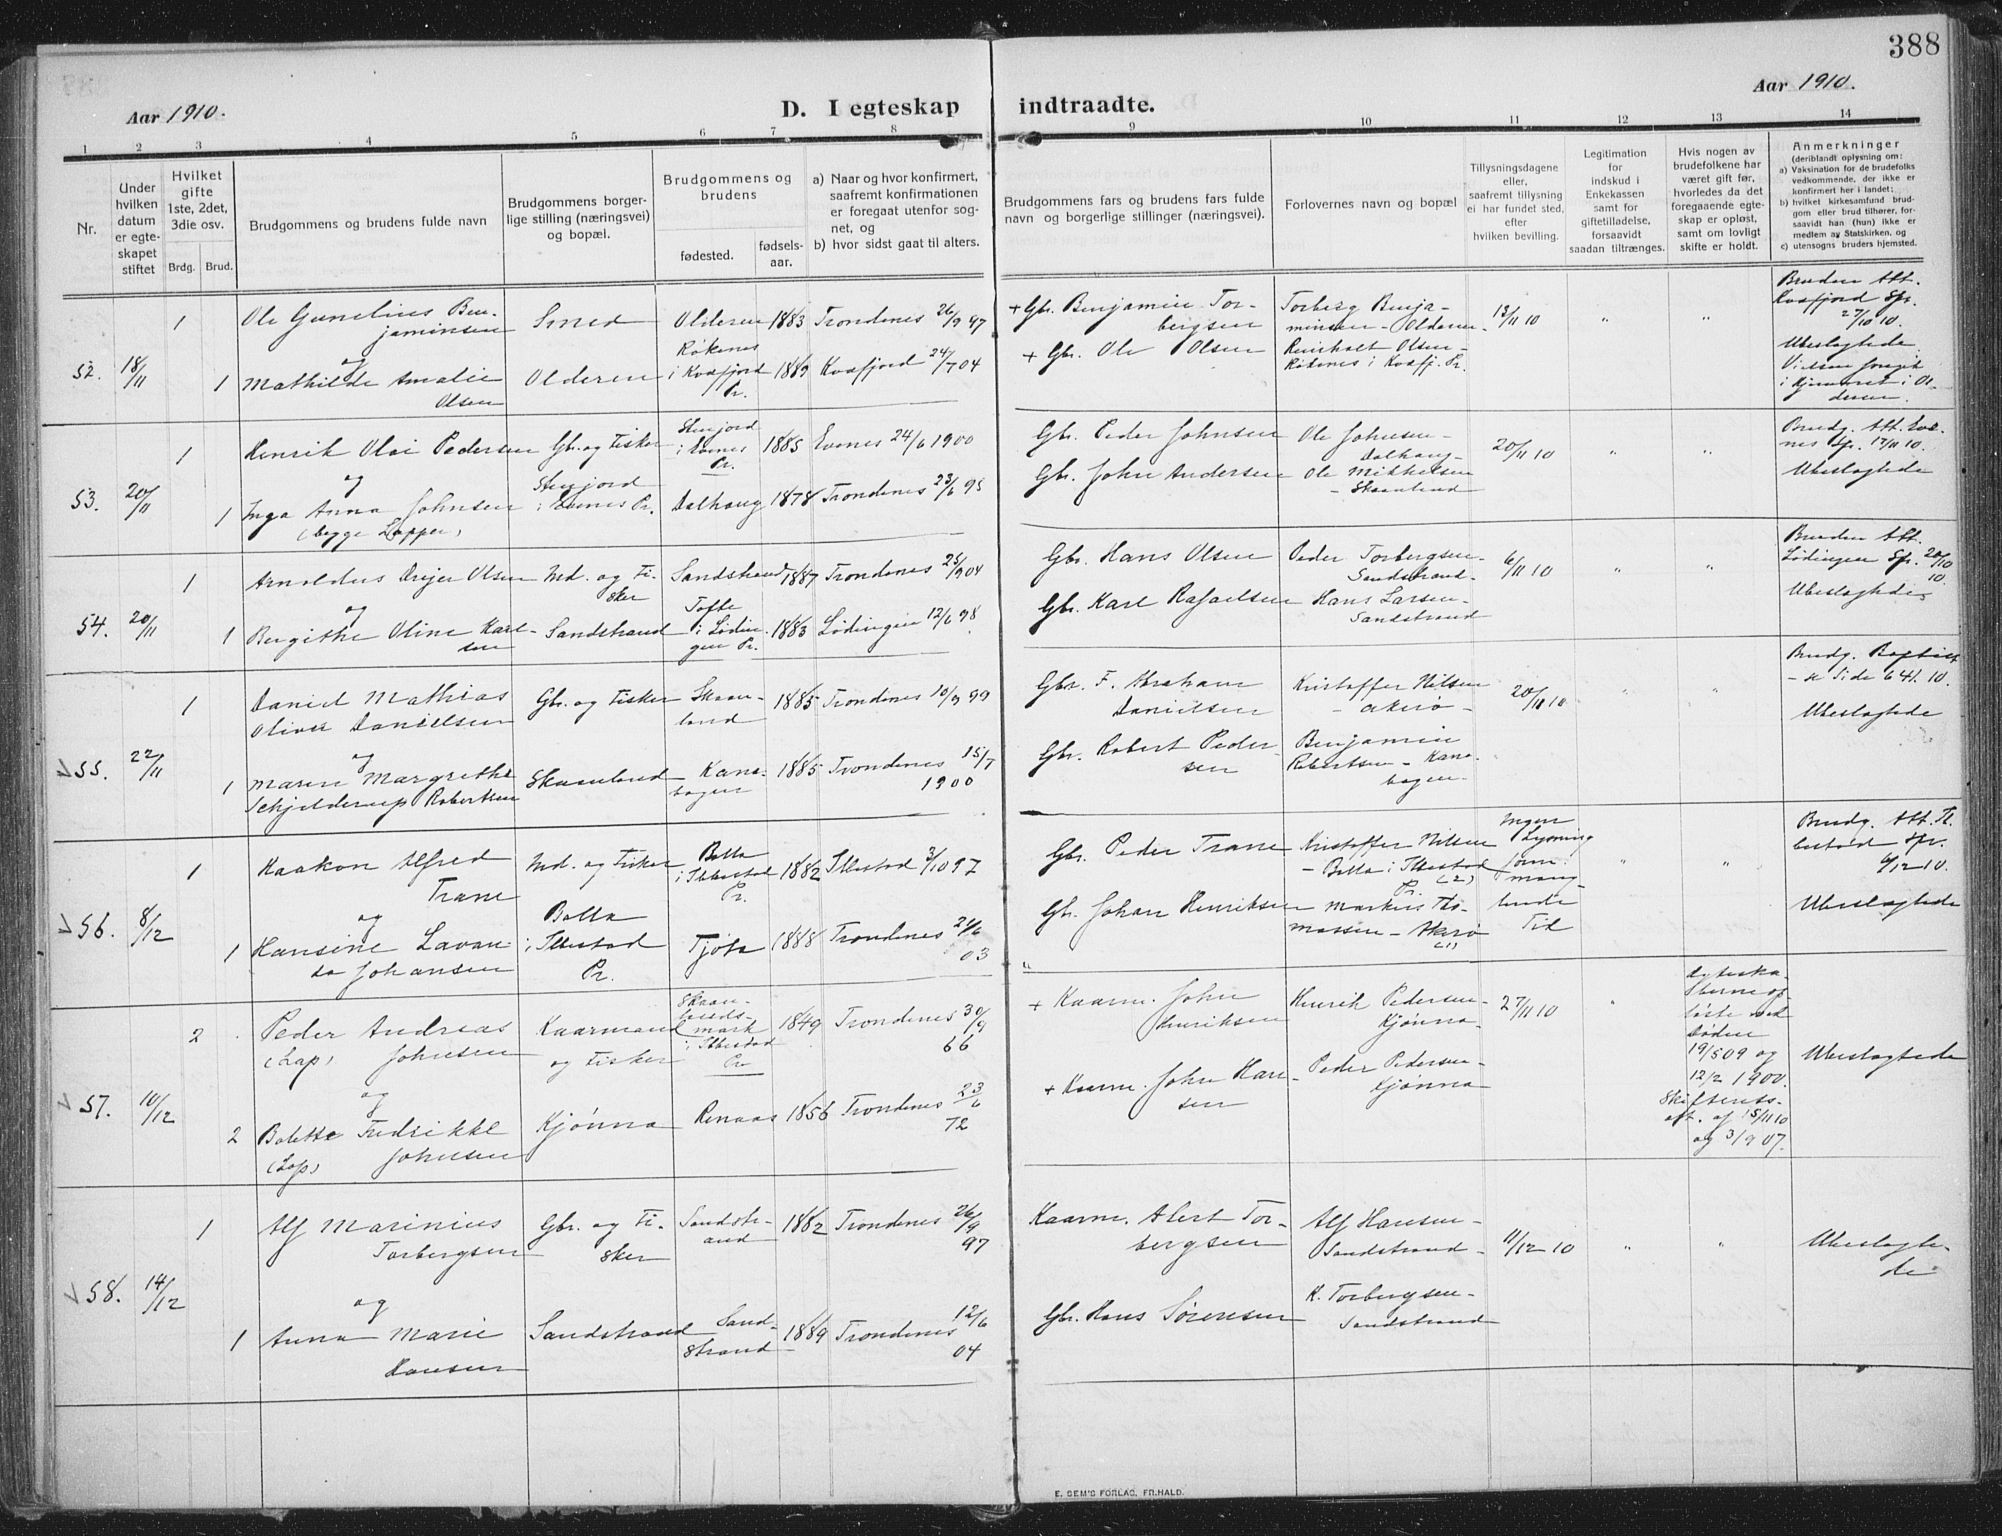 388
Aar 1910.
D. I egteskap indtraadte.
Aar 1910.
1 2 3 4 5 6 7 8 9 10 11 12 13 14
Nr.
Under hvilken datum er egteskapet stiftet
Hvilket gifte 1ste, 2det, 3die osv.
Brdg. Brud.
Brudgommens og brudens fulde navn
Brudgommens borgerlige stilling (næringsvei) og bopæl.
Brudgommens og brudens
fødested.
fødselsaar.
a) Naar og hvor konfirmert, saafremt konfirmationen er foregaat utenfor sognet, og
b) hvor sidst gaat til alters.
Brudgommens fars og brudens fars fulde navn og borgerlige stillinger (næringsvei).
Forlovernes navn og bopæl
Tillysningsdagene eller, saafremt tillysning ei har fundet sted, efter hvilken bevilling.
Legitimation for indskud i Enkekassen samt for giftetilladelse, forsaavidt saadan tiltrænges.
Hvis nogen av brudefolkene har været gift før, hvorledes da det foregaaende egteskap er opløst, samt om lovligt skifte er holdt.
Anmerkninger (deriblandt oplysning om:
a) Vaksination for de brudefolks vedkommende, der ikke er konfirmert her i landet;
b) hvilket kirkesamfund brudgom eller brud tilhører, forsaavidt han (hun) ikke er medlem av Statskirken, og
c) utensogns bruders hjemsted.
52. 18/11
1 Ole Gunelius Benjaminsen Smed Olderen 1883 Trondenes 26/9 97
og
1 Mathilde Amalie Olsen Olderen Røkenes i Kvæfjord Pr. 1889 Kvæfjord 24/7 04
+ Gbr. Benjamin Torbergsen Torberg Benjaminsen - Olderen 13/11 10 " "
+ Gbr. Ole Olsen Reinholt Olsen - Røkenes i Kvæfj. Pr.
Bruden Att. Kvæfjord Spr. 27/10 10. Ubeslagtede. Vielsen foregik i hjemmet i Olderen.
53. 20/11
1 Henrik Oloi Pedersen Gb. og Fisker i Evenes Pr. 1885 Evenes 24/6 1900
og
1 Inga Anna Johnsen i Evenes Pr. Dalhaug 1878 Trondenes 23/6 95
(begge Lapper)
Gbr. Peder Johnsen Ole Johnsen - Dalhaug - 20/11 10 " "
Gbr. John Andersen Ole Mikkelsen - Skaanland
Brudg. Att. Evenes Spr. 17/11 10. Ubeslagtede
54. 20/11
1 Arnoldus Drejer Olsen Md. og Fisker Sandstrand 1887 Trondenes 25/9 04
og
1 Bergithe Oline Karlsen Sandstrand Tofte i Lødingen Pr. 1883 Lødingen 12/6 98
Gbr. Hans Olsen Peder Torbergsen - Sandstrand - 6/11 10 " "
Gbr. Karl Rafaelsen Hans Larsen - Sandstrand
Bruden Att. Lødingen Spr. 20/10 10. Ubeslagtede
55. 22/11
1 Daniel Mathias Oliver Danielsen Gbr. og Fisker Skaanland 1885 Trondenes 10/9 99
og
1 Maren Margrethe Schjelderup Robertsen Skaanland Kanebogen 1885 Trondenes 15/7 1900
Gbr. F. Abraham Danielsen Kristoffer Nilsen - Akerø - 20/11 10 " "
Gbr. Robert Pedersen Benjamin Robertsen - Kanebogen -
Brudg. Baptist - se Side 641. 10. Ubeslagtede
56. 8/12
1 Haakon Alfred Trane Md. og Fisker Bolla i Ibbestad Pr. 1882 Ibbestad 3/10 97
og
1 Hansine Lavanda Johansen Bolla i Ibbestad Pr. Tjøfs 1888 Trondenes 21/6 03
Gbr. Peder Trane Kristoffer Nilsen - Bolla i Ibbestad Pr. (2) Ingen Lysning form. manglende Tid " "
Gbr. Johan Henriksen Markus Thomassen - Akerø (1)
Brudg. Att. Ibbestad Spr. 6/12 10. Ubeslagtede
57. 10/12
2 Peder Andreas Johnsen (Lap) Kaarmand og Fisker Skaanlandsmark i Ibbestad Pr 1849 Trondenes 30/9 66
og
2 Bolette Fredrikke Johnsen (Lap) Kjønna Renaas 1856 Trondenes 23/6 72
+ Kaarm. John Henriksen Henrik Pedersen - Kjønna - 27/11 10 "
+ Kaarm. John Hansen Peder Pedersen - Kjønna
Egteskaberne opløste ved Døden 19/5 09 og 12/2 1900. Skifteretsatt. af 15/11 10 og 3/9 07. Ubeslagtede
58. 14/12
1 Alf Marinius Torbergsen Gbr. og Fisker Sandstrand 1882 Trondenes 26/9 97
og
1 Anna Marie Hansen Sandstrand Sandstrand 1889 Trondenes 12/6 04
Kaarm. Alert Torbergsen Alf Hansen - Sandstrand - 11/12 10 " "
Gbr. Hans Sørensen K. Torbergsen - Sandstrand
Ubeslagtede
E. SEM'S FORLAG, FR.HALD.